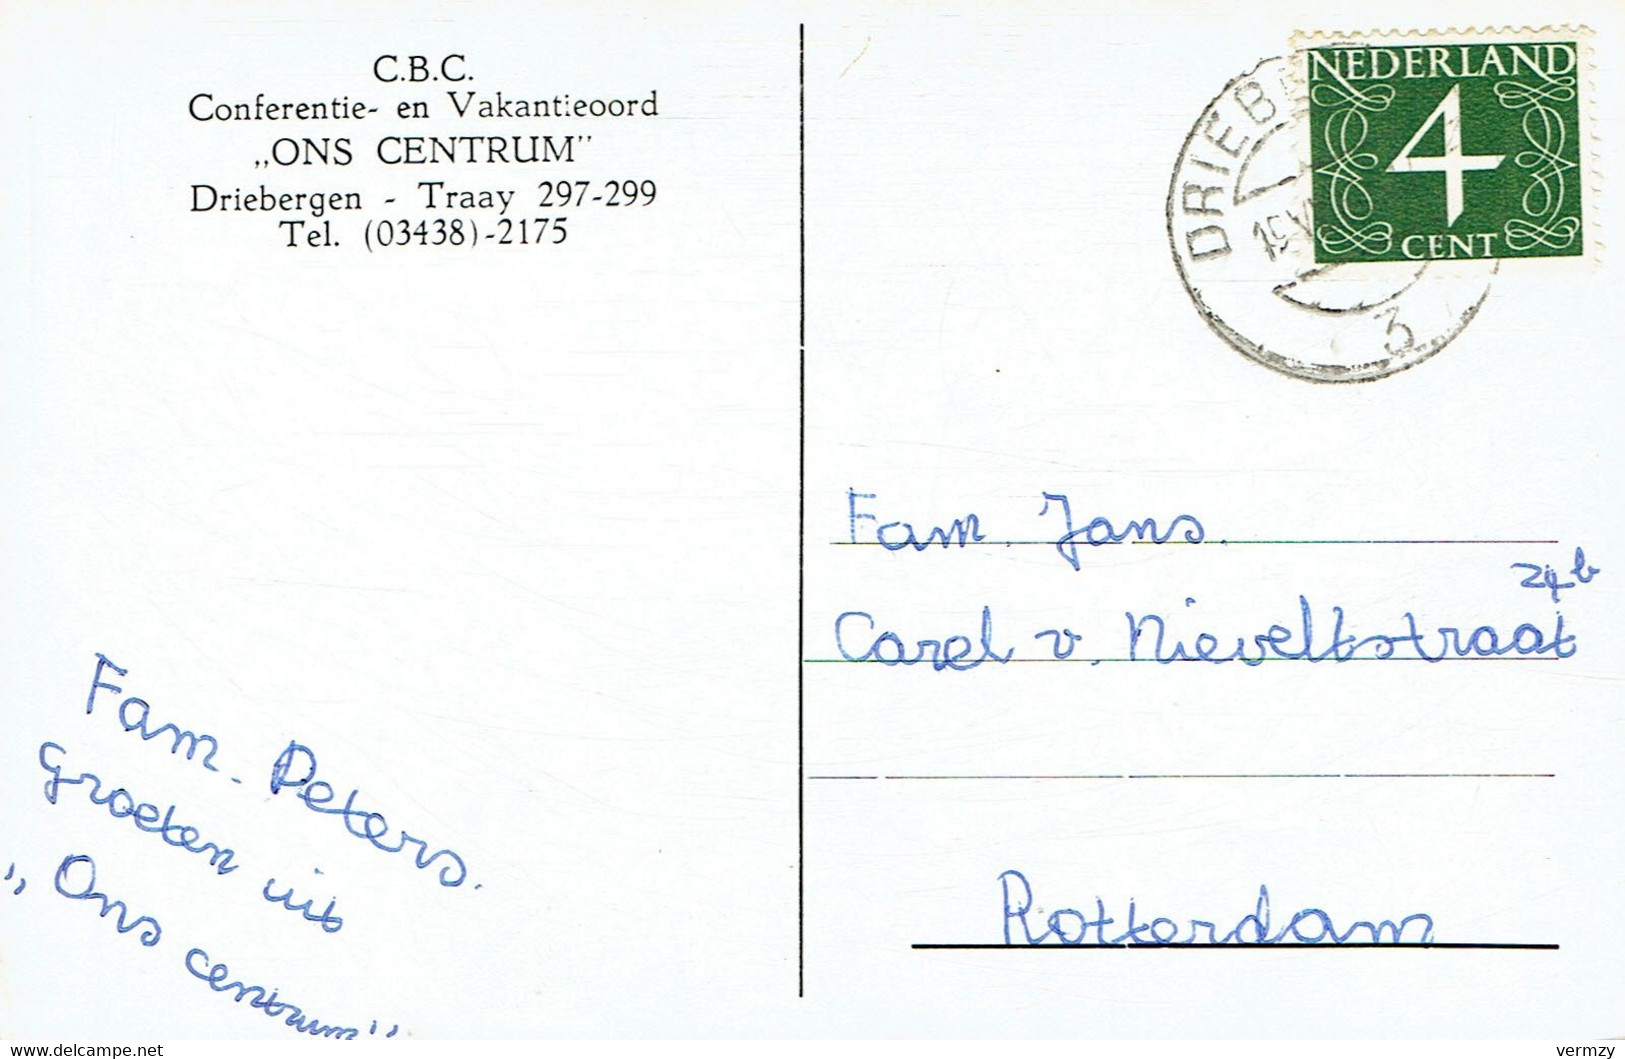 C.B.C.
Conferentie- en Vakantieoord
„ONS CENTRUM"
Driebergen - Traay 297-299
Tel. (03438)-2175
NEDERLAND
4
CENT
3
Fam. Jans.
24b
Carel v. Nieveltstraat
Rotterdam
Fam. Peters.
groeten uit
„Ons centrum"
www.delcampe.net
vermzy